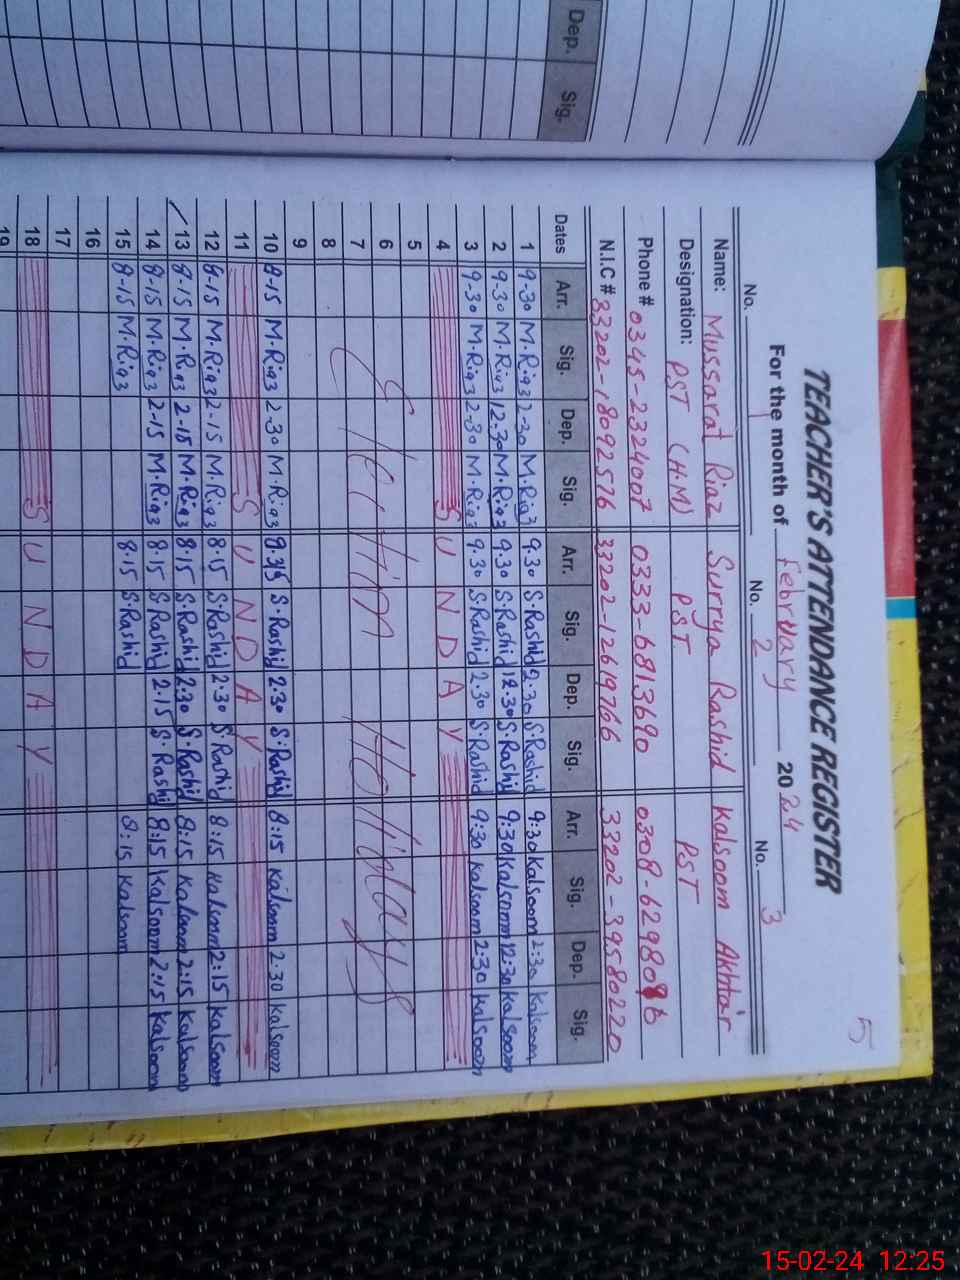 Dep. Sig.
5
TEACHER'S ATTENDANCE REGISTER
For the month of February 2024
No. 1 No. 2 No. 3
Name: Mussarat Riaz Surrya Rashid Kalsoom Akhtar
Designation: PST (H.M) PST PST
Phone # 0345-2324007 0333-6813690 0308-6298086
N.I.C # 33202-18092576 33202-12619766 33202-39580220
Dates Arr. Sig. Dep. Sig. Arr. Sig. Dep. Sig. Arr. Sig. Dep. Sig.
1 9-30 M.Riaz 2-30 M.Riaz 9.30 S.Rashid 2.30 S.Rashid 9:30 Kalsoom 2:30 Kalsoom
2 9.30 M.Riaz 12.30 M.Riaz 9.30 S.Rashid 12.30 S.Rashid 9:30 Kalsoom 12:30 Kalsoom
3 9-30 M.Riaz 2-30 M.Riaz 9.30 S.Rashid 2.30 S.Rashid 9:30 Kalsoom 2:30 Kalsoom
4 S U N D A Y
5
6
7 Holidays
8
9
10 8-15 M.Riaz 2-30 M.Riaz S.Rashid 2.30 S.Rashid 8:15 Kalsoom 2-30 Kalsoom
11 S U N D A Y
12 8-15 M.Riaz 2-15 M.Riaz 8-15 S.Rashid 2.30 S.Rashid 8:15 Kalsoom 2:15 Kalsoom
13 8-15 M.Riaz 2-15 M.Riaz 8.15 S.Rashid 2.30 S.Rashid 8:15 Kalsoom 2:15 Kalsoom
14 8-15 M.Riaz 2-15 M.Riaz 8.15 S.Rashid 2.15 S.Rashid 8:15 Kalsoom 2:15 Kalsoom
15 8-15 M.Riaz 8.15 S.Rashid 8:15 Kalsoom
16
17
18 S U N D A Y
19
15-02-24 12:25